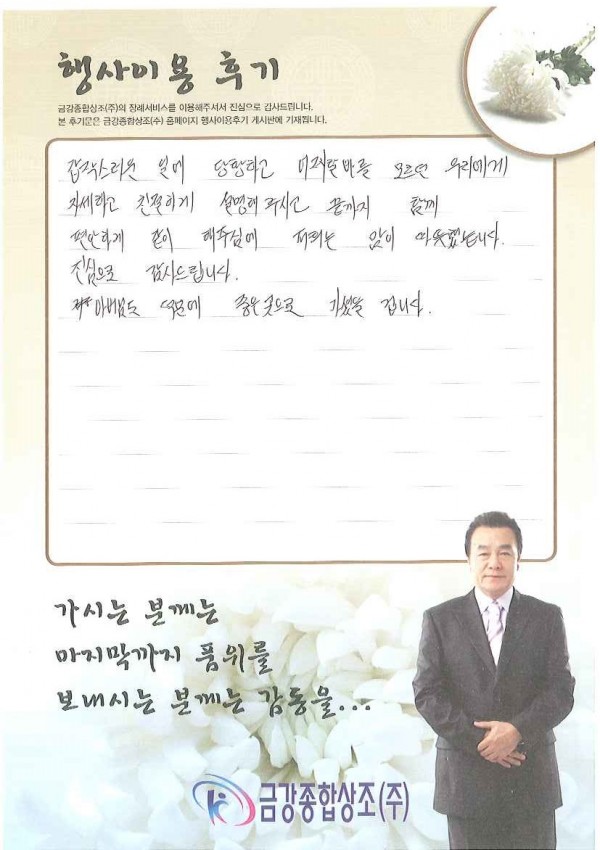 행사이용 후기
금강종합상조(주)의 장례서비스를 이용해주셔서 진심으로 감사드립니다.
본 후기문은 금강종합상조(주) 홈페이지 행사이용후기 게시판에 기재됩니다.
갑작스러운 일에 당황하고 어찌할바를 모르던 우리에게
자세하고 친절하게 설명해 주시고 끝까지 함께
편안하게 같이 해주심에 저희는 맘이 따뜻했습니다.
진심으로 감사드립니다.
아버님도 덕분에 좋은곳으로 가셨을 겁니다.
가시는 분께는
마지막까지 품위를
보내시는 분께는 감동을...
금강종합상조(주)